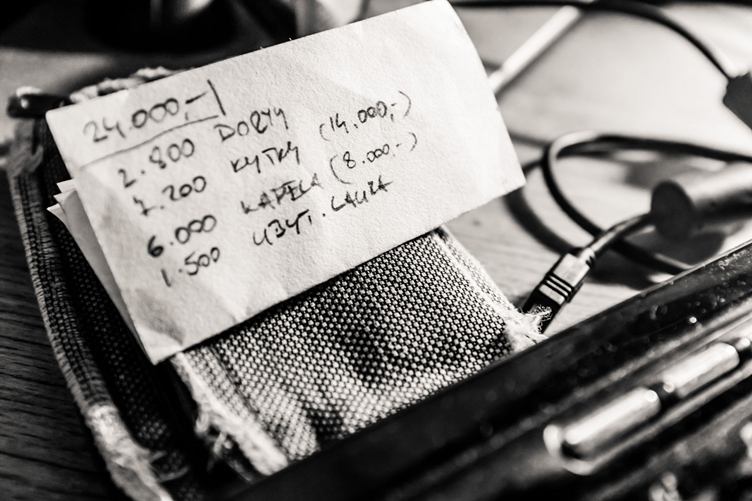 24.000,-
2.800 DORTY
7.200 KYTKY (14.000,-)
6.000 KAPELA (8.000.-)
1.500 UBYT. LAUKA